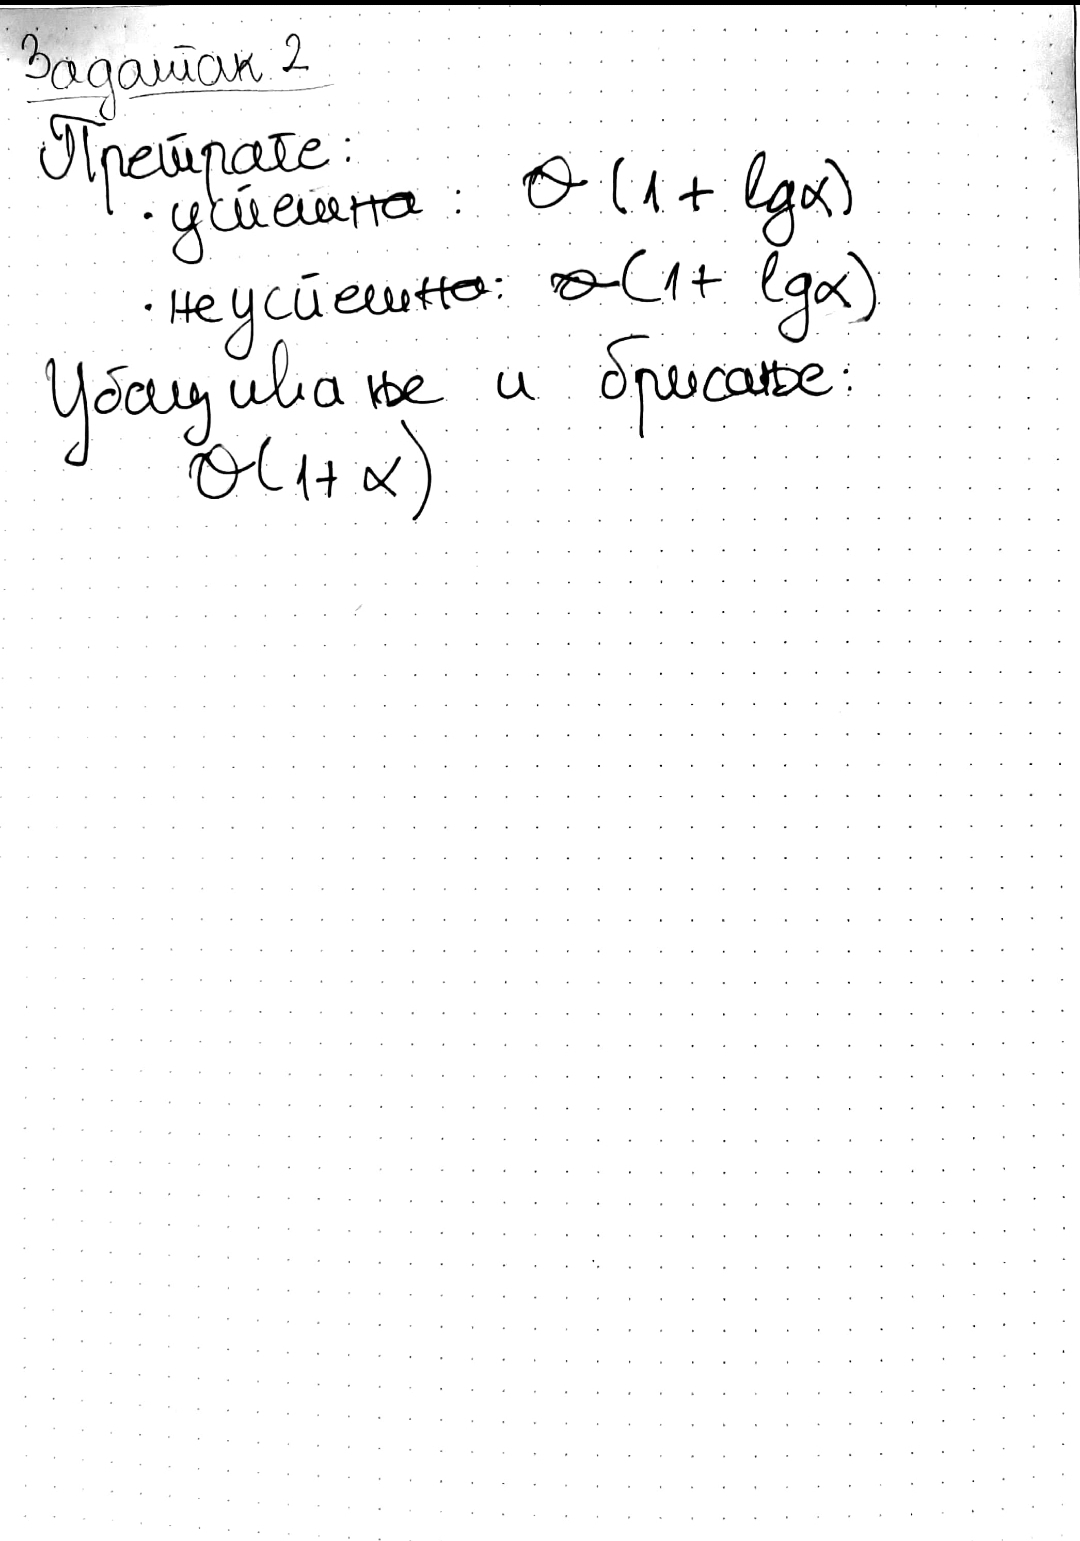 Задатак 2
Претраге:
· успешна : Θ(1 + lgα)
· неуспешна: Θ(1 + lgα)
Убацивање и брисање:
Θ(1+ α)